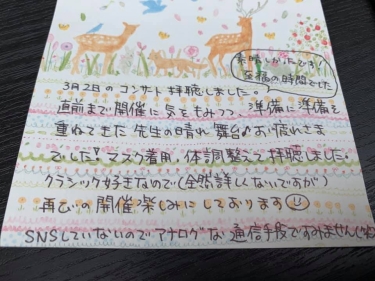 素晴しかったです!
至福の時間でした
3月2日の コンサート 拝聴しました。
直前まで開催に気をもみつつ、準備に準備を
重ねてきた 先生の晴れ舞台♪お疲れさま
でした!マスク着用、体調整えて拝聴しました。
クラシック好きなので(全然詳しくないですが)
再びの開催楽しみにしております
SNSしていないのでアナログな 通信手段ですみません